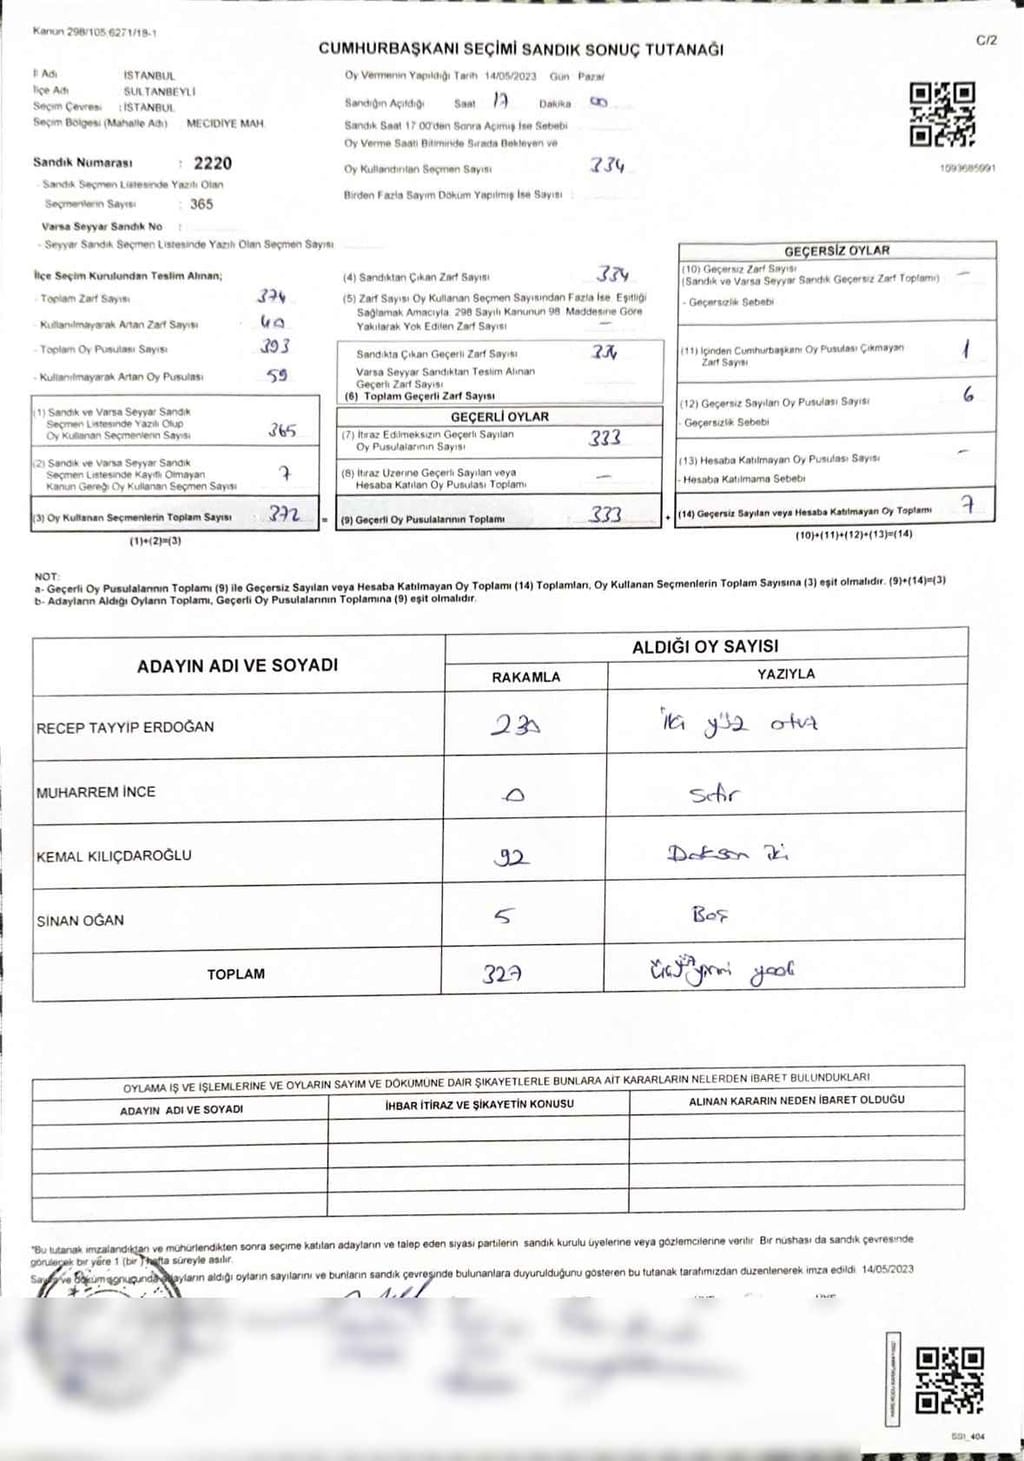 Kanun 298/105,6271/18-1
C/2
CUMHURBAŞKANI SEÇİMİ SANDIK SONUÇ TUTANAĞI
İl Adı İSTANBUL
İlçe Adı SULTANBEYLİ
Seçim Çevresi : İSTANBUL
Seçim Bölgesi (Mahalle Adı) MECİDİYE MAH.
Sandık Numarası : 2220
- Sandık Seçmen Listesinde Yazılı Olan
Seçmenlerin Sayısı : 365
Varsa Seyyar Sandık No :
- Seyyar Sandık Seçmen Listesinde Yazılı Olan Seçmen Sayısı
Oy Vermenin Yapıldığı Tarih 14/05/2023 Gün Pazar
Sandığın Açıldığı Saat 17 Dakika 00
Sandık Saat 17:00'den Sonra Açımış İse Sebebi
Oy Verme Saati Bitiminde Sırada Bekleyen ve
Oy Kullandırılan Seçmen Sayısı 334
Birden Fazla Sayım Döküm Yapılmış İse Sayısı :
1093685991
İlçe Seçim Kurulundan Teslim Alınan;
- Toplam Zarf Sayısı 374
- Kullanılmayarak Artan Zarf Sayısı 40
- Toplam Oy Pusulası Sayısı 393
- Kullanılmayarak Artan Oy Pusulası 59
(1) Sandık ve Varsa Seyyar Sandık
Seçmen Listesinde Yazılı Olup
Oy Kullanan Seçmenlerin Sayısı 365
(2) Sandık ve Varsa Seyyar Sandık
Seçmen Listesinde Kayıtlı Olmayan
Kanun Gereği Oy Kullanan Seçmen Sayısı 7
(3) Oy Kullanan Seçmenlerin Toplam Sayısı : 372 =
(1)+(2)=(3)
(4) Sandıktan Çıkan Zarf Sayısı 334
(5) Zarf Sayısı Oy Kullanan Seçmen Sayısından Fazla İse, Eşitliği
Sağlamak Amacıyla, 298 Sayılı Kanunun 98. Maddesine Göre
Yakılarak Yok Edilen Zarf Sayısı —
Sandıkta Çıkan Geçerli Zarf Sayısı 334
Varsa Seyyar Sandıktan Teslim Alınan
Geçerli Zarf Sayısı
(6) Toplam Geçerli Zarf Sayısı
GEÇERLİ OYLAR
(7) İtiraz Edilmeksizin Geçerli Sayılan
Oy Pusulalarının Sayısı 333
(8) İtiraz Üzerine Geçerli Sayılan veya
Hesaba Katılan Oy Pusulası Toplamı —
(9) Geçerli Oy Pusulalarının Toplamı : 333 +
GEÇERSİZ OYLAR
(10) Geçersiz Zarf Sayısı
(Sandık ve Varsa Seyyar Sandık Geçersiz Zarf Toplamı) —
- Geçersizlik Sebebi
(11) İçinden Cumhurbaşkanı Oy Pusulası Çıkmayan
Zarf Sayısı 1
(12) Geçersiz Sayılan Oy Pusulası Sayısı 6
- Geçersizlik Sebebi
(13) Hesaba Katılmayan Oy Pusulası Sayısı —
- Hesaba Katılmama Sebebi
(14) Geçersiz Sayılan veya Hesaba Katılmayan Oy Toplamı 7
(10)+(11)+(12)+(13)=(14)
NOT:
a- Geçerli Oy Pusulalarının Toplamı (9) ile Geçersiz Sayılan veya Hesaba Katılmayan Oy Toplamı (14) Toplamları, Oy Kullanan Seçmenlerin Toplam Sayısına (3) eşit olmalıdır. (9)+(14)=(3)
b- Adayların Aldığı Oyların Toplamı, Geçerli Oy Pusulalarının Toplamına (9) eşit olmalıdır.
ADAYIN ADI VE SOYADI
ALDIĞI OY SAYISI
RAKAMLA YAZIYLA
RECEP TAYYİP ERDOĞAN 230 iki yüz otuz
MUHARREM İNCE 0 Sıfır
KEMAL KILIÇDAROĞLU 92 Doksan iki
SİNAN OĞAN 5 Beş
TOPLAM 327 yirmi yedi
OYLAMA İŞ VE İŞLEMLERİNE VE OYLARIN SAYIM VE DÖKÜMÜNE DAİR ŞİKAYETLERLE BUNLARA AİT KARARLARIN NELERDEN İBARET BULUNDUKLARI
ADAYIN ADI VE SOYADI İHBAR İTİRAZ VE ŞİKAYETİN KONUSU ALINAN KARARIN NEDEN İBARET OLDUĞU
*Bu tutanak imzalandıktan ve mühürlendikten sonra seçime katılan adayların ve talep eden siyasi partilerin sandık kurulu üyelerine veya gözlemcilerine verilir. Bir nüshası da sandık çevresinde
görülecek bir yere 1 (bir) hafta süreyle asılır.
Sayım ve döküm sonucunda adayların aldığı oyların sayılarını ve bunların sandık çevresinde bulunanlara duyurulduğunu gösteren bu tutanak tarafımızdan düzenlenerek imza edildi. 14/05/2023
SSI_404